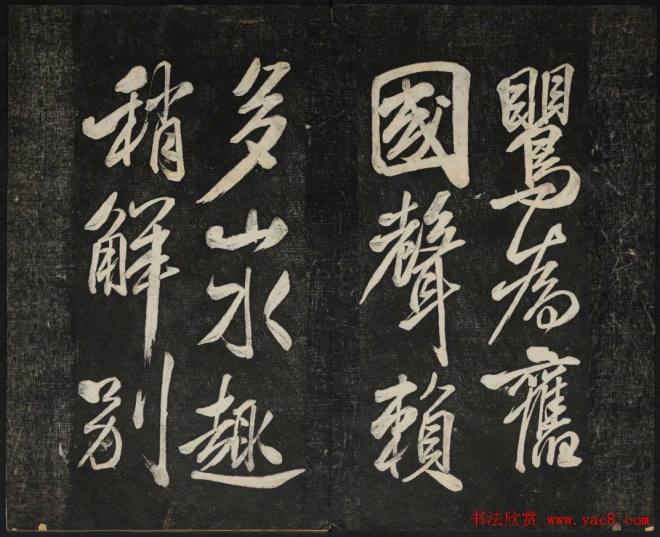 鸎為舊
國聲賴
多山水趣
稍解別
书法欣赏 www.yac8.com